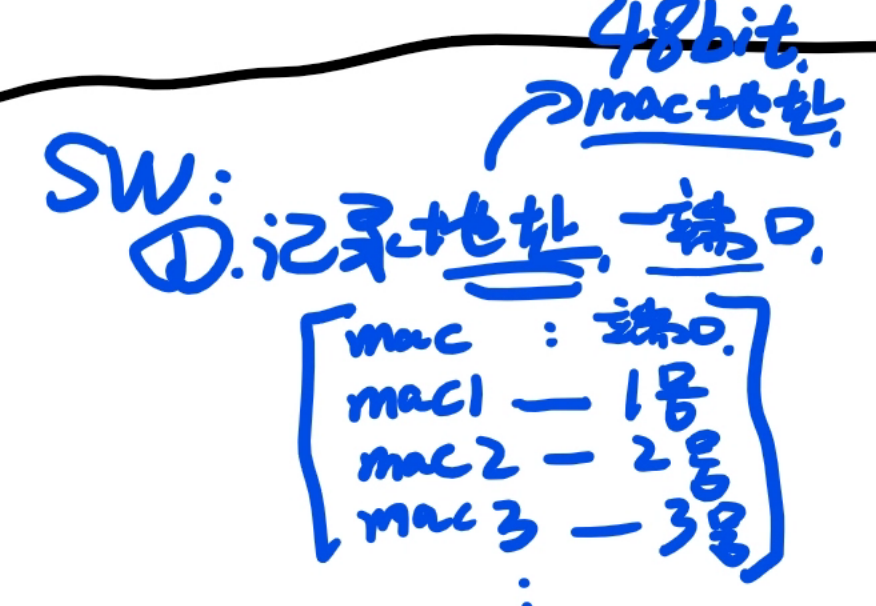 48bit.
mac地址.
SW:
①.记录地址.—端口.
mac : 端口.
mac1 — 1号
mac2 — 2号
mac3 — 3号
⋮